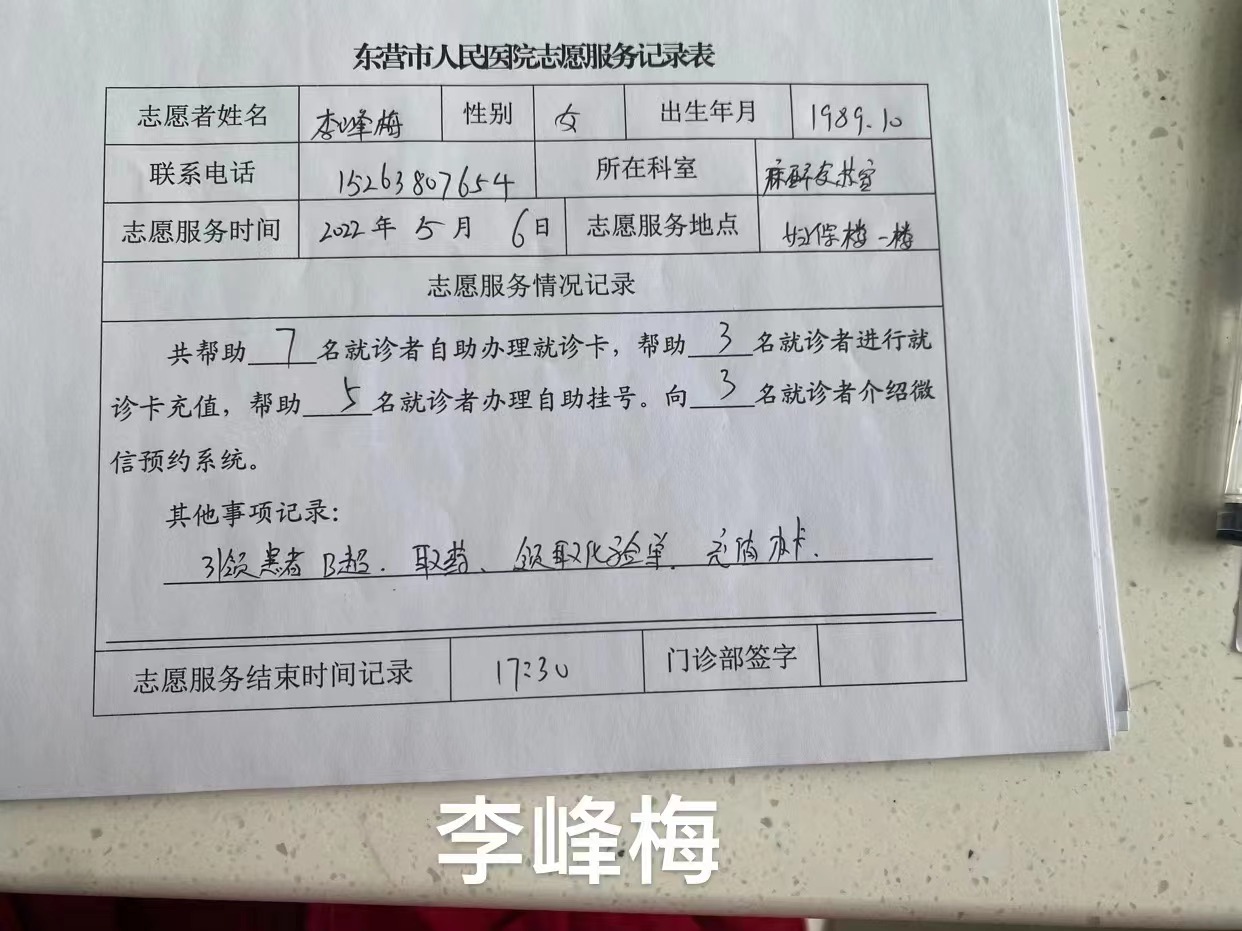 东营市人民医院志愿服务记录表
志愿者姓名 李峰梅 性别 女 出生年月 1989.10
联系电话 15263807654 所在科室 麻醉复苏室
志愿服务时间 2022年 5月 6日 志愿服务地点 妇保楼一楼
志愿服务情况记录
共帮助 7 名就诊者自助办理就诊卡，帮助 3 名就诊者进行就
诊卡充值，帮助 5 名就诊者办理自助挂号。向 3 名就诊者介绍微
信预约系统。
其他事项记录：
引领患者B超．取药、领取化验单．充值办卡．
志愿服务结束时间记录 17:30 门诊部签字
李峰梅